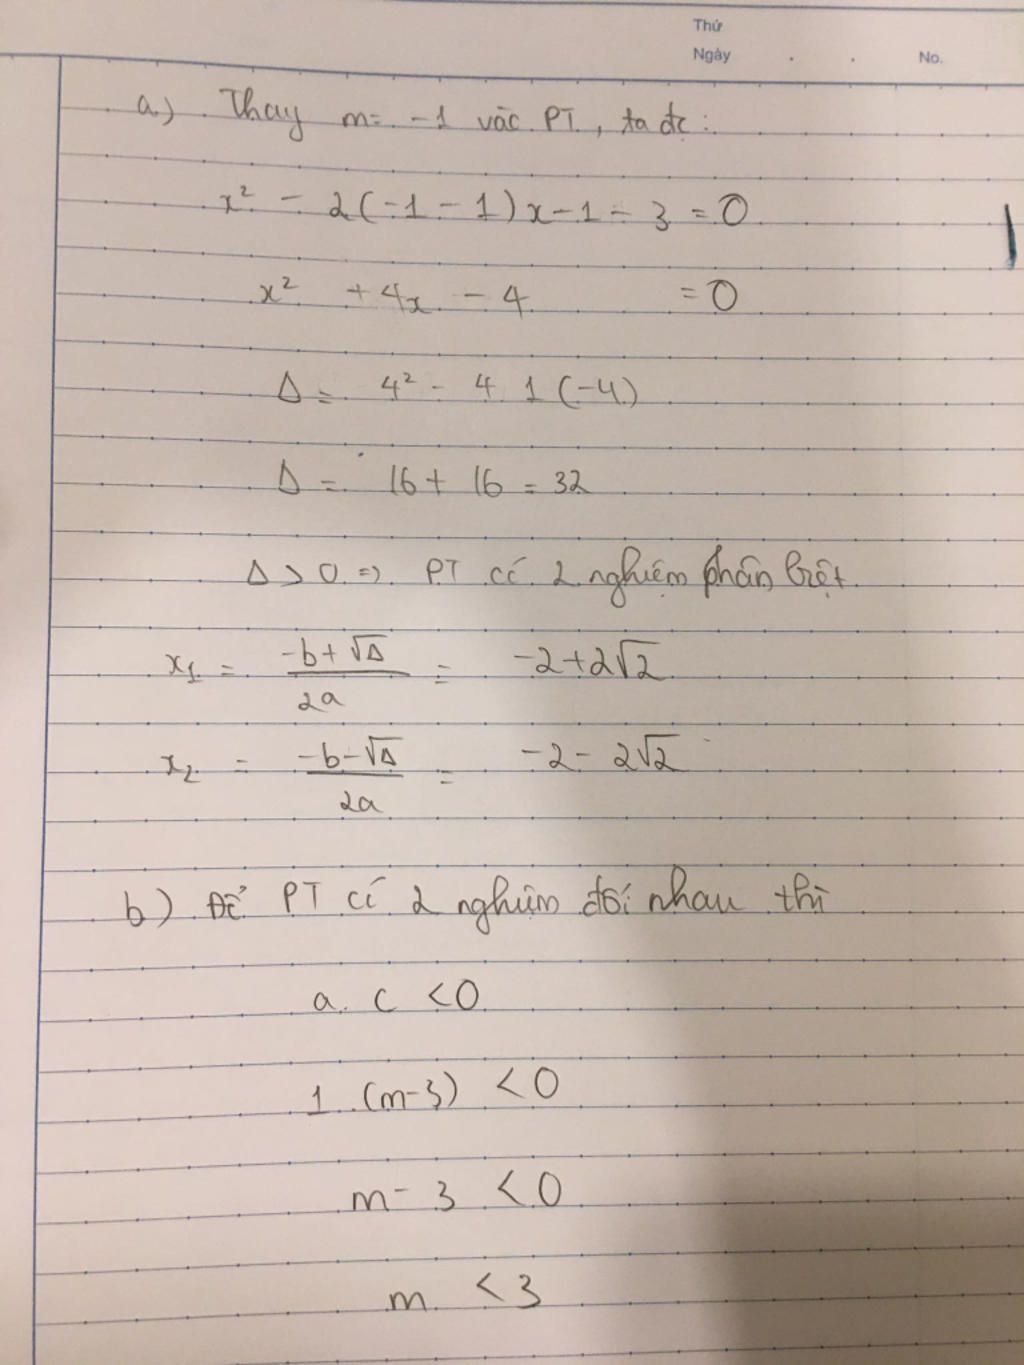 Thứ
Ngày . . No.
a) Thay m = -1 vào PT, ta đc:
x² - 2(-1-1)x-1-3 = 0
x² + 4x - 4 = 0
Δ = 4² - 4.1(-4)
Δ = 16 + 16 = 32
Δ > 0 => PT có 2 nghiệm phân biệt
x₁ = \frac{-b+√Δ}{2a} = -2+2√2
x₂ = \frac{-b-√Δ}{2a} = -2-2√2
b) Để PT có 2 nghiệm đối nhau thì
a. c < 0
1 (m-3) < 0
m - 3 < 0
m < 3